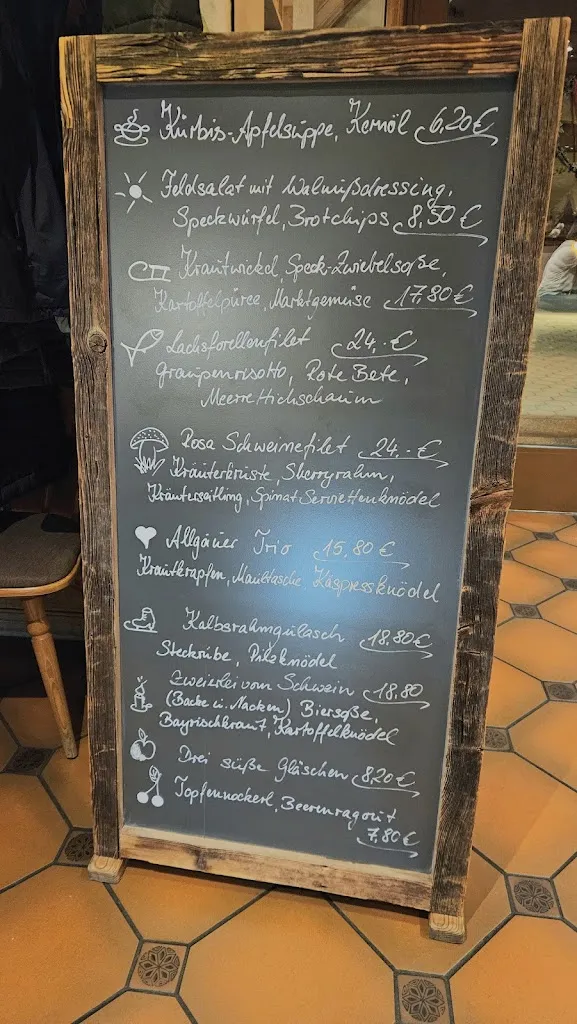 Kürbis-Apfelsuppe, Kernöl 6,20 €
Feldsalat mit Walnußdressing,
Speckwürfel, Brotchips 8,50 €
Krautwickel, Speck-Zwiebelsoße,
Kartoffelpüree, Marktgemüse 17,80 €
Lachsforellenfilet 24,- €
Graupenrisotto, Rote Bete,
Meerrettichschaum
Rosa Schweinefilet 24,- €
Kräuterkruste, Sherryrahm,
Kräutersaitling, Spinat Serviettenknödel
Allgäuer Trio 15,80 €
Krautkrapfen, Maultasche, Kaspressknödel
Kalbsrahmgulasch 18,80 €
Steckrübe, Pilzknödel
Zweierlei vom Schwein 18,80
(Backe u. Nacken) Biersoße,
Bayrischkraut, Kartoffelknödel
Drei süße Gläschen 8,20 €
Topfennockerl, Beerenragout
7,80 €